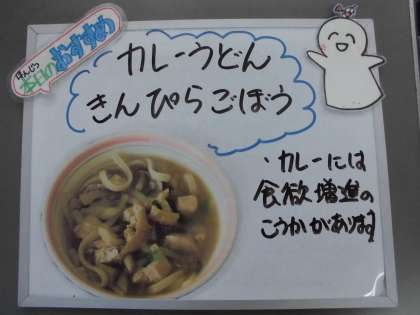 ほんじつ
本日のおすすめ
カレーうどん
きんぴらごぼう
・カレーには
食欲増進の
こうかがあります